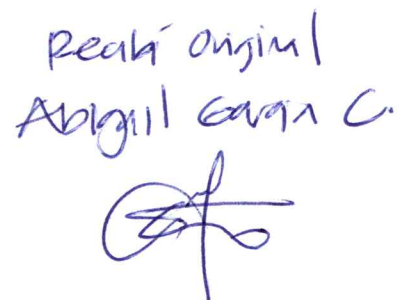 Recibí Original
Abigail Garan C.